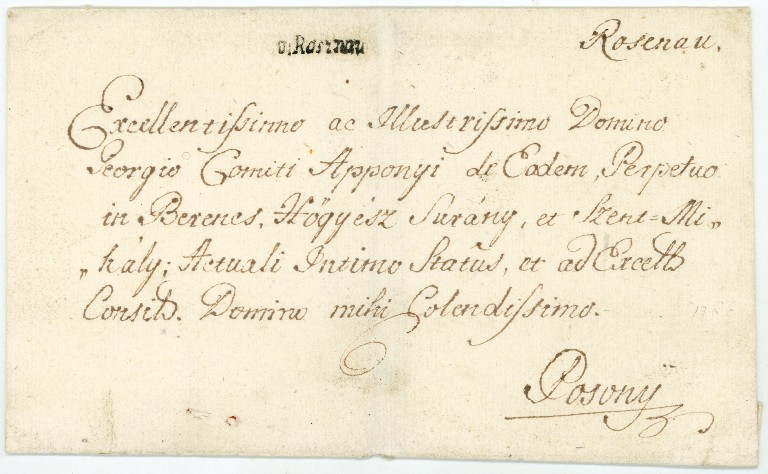 v. Rosenau
Rosenau.
Excellentissimo ac Illustrissimo Domino
Georgio Comiti Apponyi de Eadem, Perpetuo
in Berencs, Hőgyész Surány, et Szent=Mi„
„hály; Actuali Intimo Status, et ad Excell
Consil. Domino mihi Colendissimo.
Posony